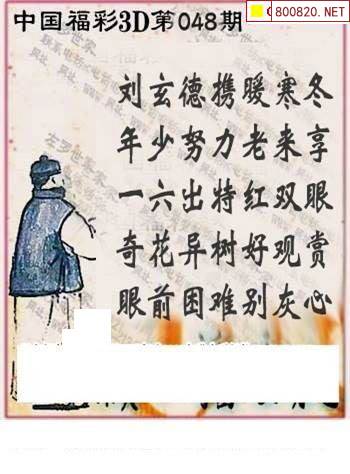 中国福彩3D第048期
800820.NET
刘玄德携暖寒冬
年少努力老来享
一六出特红双眼
奇花异树好观赏
眼前困难别灰心